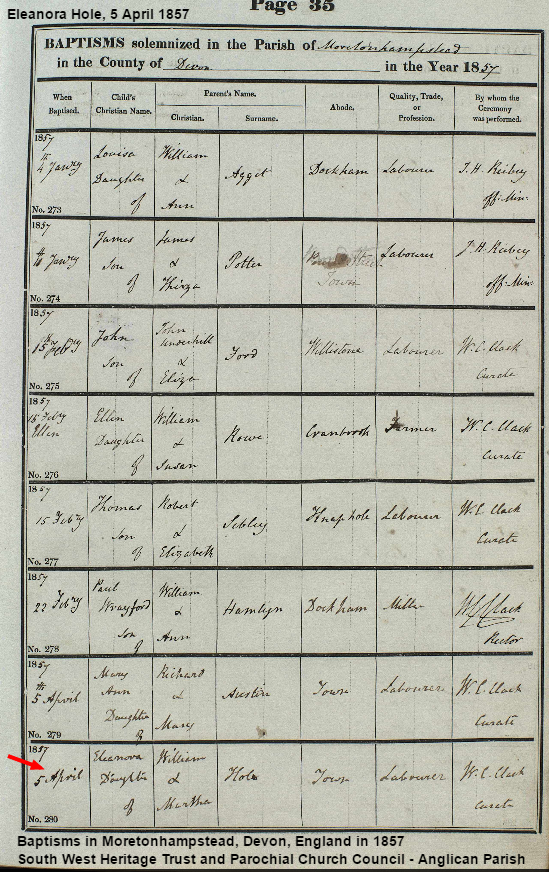 Page 35
Eleanora Hole, 5 April 1857
BAPTISMS solemnized in the Parish of Moretonhampstead
in the County of Devon in the Year 1857
When Baptised. Child's Christian Name. Parent's Name. Christian. Surname. Abode. Quality, Trade, or Profession. By whom the Ceremony was performed.
1857
4th Janry Louisa Daughter of William & Ann Aggit Dockham Labourer J. H. Reibey off: Min:
No. 273
1857
Janry James Son of James & Thirza Potter Town Labourer J. H. Reibey off: Min:
No. 274
1857
15th Febry John Son of John Underhill & Eliza Ford Willistone Labourer W. C. Clack Curate
No. 275
1857
15 Febry Ellen Ellen Daughter of William & Susan Rowe Cranbrook Farmer W. C. Clack Curate
No. 276
1857
15 Febry Thomas Son of Robert & Elizabeth Sibley Knaphole Labourer W. C. Clack Curate
No. 277
1857
22 Febry Paul Wrayford Son of William & Ann Hamlyn Dockham Miller Clack Rector
No. 278
1857
5th April Mary Ann Daughter of Richard & Mary Austin Town Labourer W. C. Clack Curate
No. 279
1857
5 April Eleanora Daughter of William & Martha Hole Town Labourer W. C. Clack Curate
No. 280
Baptisms in Moretonhampstead, Devon, England in 1857
South West Heritage Trust and Parochial Church Council - Anglican Parish